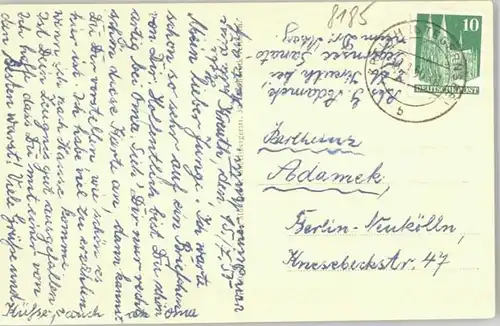 8185
10
DEUTSCHE POST
b
Kreuth, den 15./7. 51
Mein lieber Junge! Ich warte
schon so sehr auf ein Briefchen
von Dir. Hoffentlich bist Du schön
artig bei Oma. Sieh Dir nur recht
schön diese Karte an, dann kannst
Du Dir vorstellen wie schön es
hier ist. Ich habe viel zu erzählen
wenn ich nach Hause komme.
Ist Dein Zeugnis gut ausgefallen
Ich hoffe, dass Du mit einer von
den Besten warst! Viele Grüße und
Küsse, auch an Oma
Adamek
Kreuth bei
Tegernsee Sanato
Dr. May.
Adamek,
Berlin-Neukölln,
Knesebeckstr. 47